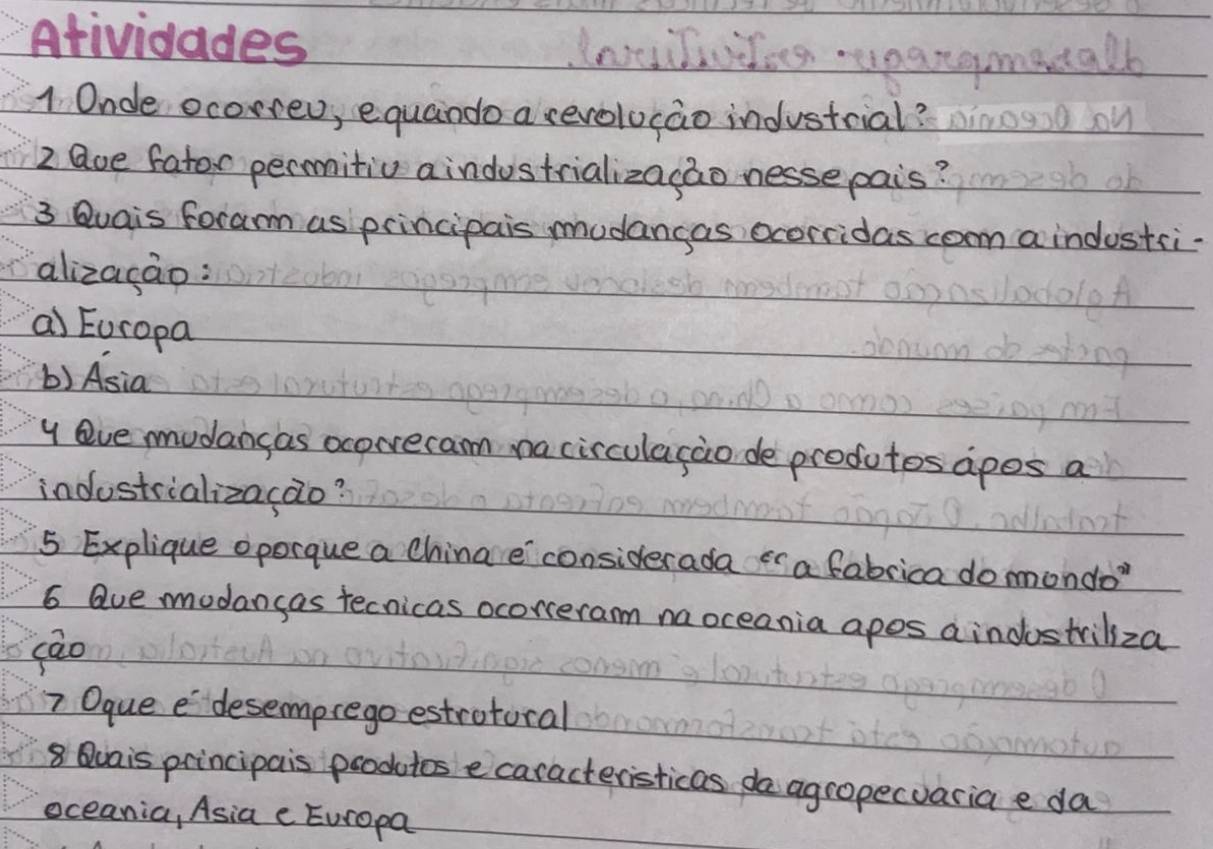 Atividades
1 Onde ocorreu, e quando a revolução industrial?
2 Que fator permitiu a industrialização nesse pais?
3 Quais foram as principais mudanças ocorridas com a industri-
alização:
a) Europa
b) Ásia
4 Que mudanças ocorreram na circulação de produtos ápos a
industrialização?
5 Explique o porque a China é considerada "a fabrica do mundo"
6 Que mudanças tecnicas ocorreram na oceania apos a industriliza
ção
7 Oque é desemprego estrutural
8 Quais principais produtos e caracteristicas da agropecuaria e da
oceania, Asia e Europa